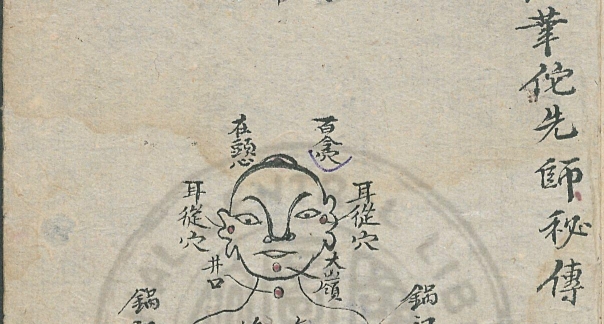 華佗先師秘傳
百會
在顖
耳從穴
耳從穴
大嶺
井口
鍋
鍋